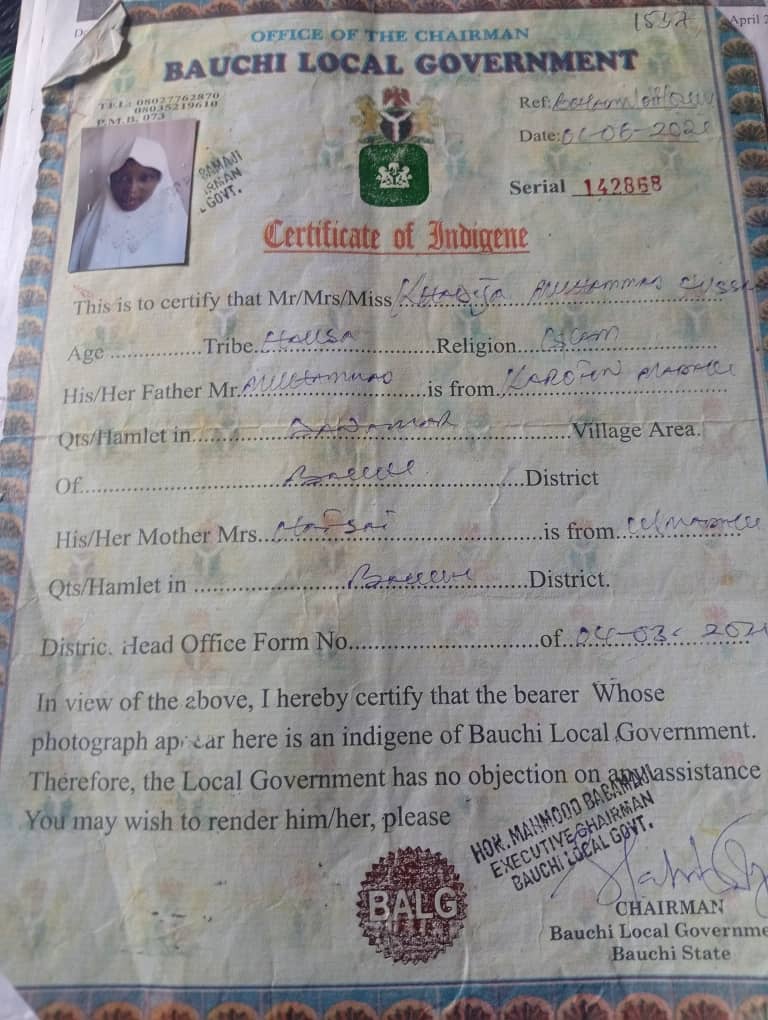 1537
April 2
OFFICE OF THE CHAIRMAN
BAUCHI LOCAL GOVERNMENT
TEL: 08027762870
08035219610
P.M.B. 073
Ref:
Date: 01-06-202
Serial 142868
BAMAJI
RMAN
GOVT.
Certificate of Indigene
This is to certify that Mr/Mrs/Miss Khadija Muhammad
Age ............... Tribe Hausa Religion Islam
His/Her Father Mr. Muhammad is from Karofin Madaki
Qts/Hamlet in............Village Area.
Of............Bauchi............District
His/Her Mother Mrs. is from
Qts/Hamlet in ............Bauchi............District.
Distric. Head Office Form No............of 04-03-202
In view of the above, I hereby certify that the bearer Whose
photograph appear here is an indigene of Bauchi Local Government.
Therefore, the Local Government has no objection on any assistance
You may wish to render him/her, please
HON. MAHMOOD BABAMAJI
EXECUTIVE CHAIRMAN
BAUCHI LOCAL GOVT.
BALG
CHAIRMAN
Bauchi Local Governme
Bauchi State